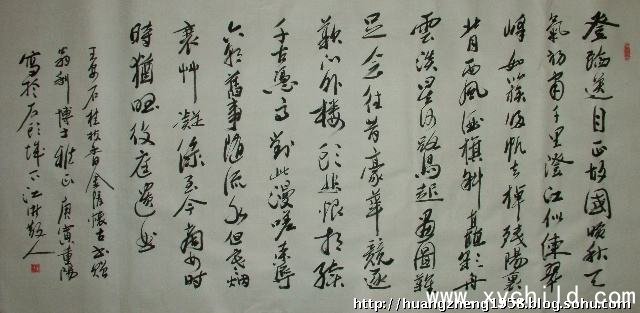 登臨送目正故國晚秋天
氣初肅千里澄江似練翠
峰如簇歸帆去棹殘陽裏
背西風酒旗斜矗彩舟
雲淡星河鷺起畫圖難
足念往昔豪華競逐
歎門外樓頭悲恨相續
千古憑高對此漫嗟榮辱
六朝舊事隨流水但寒烟
衰艸凝綠至今商女時
時猶唱後庭遺曲
王安石桂枝香金陵懷古書贈
博士雅正庚寅重陽
寫於石頭城下江人
http://huangzheng1958.blog.sohu.com/
www.xychild.com